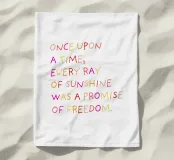 ONCE UPON
A TIME,
EVERY RAY
OF SUNSHINE
WAS A PROMISE
OF FREEDOM.